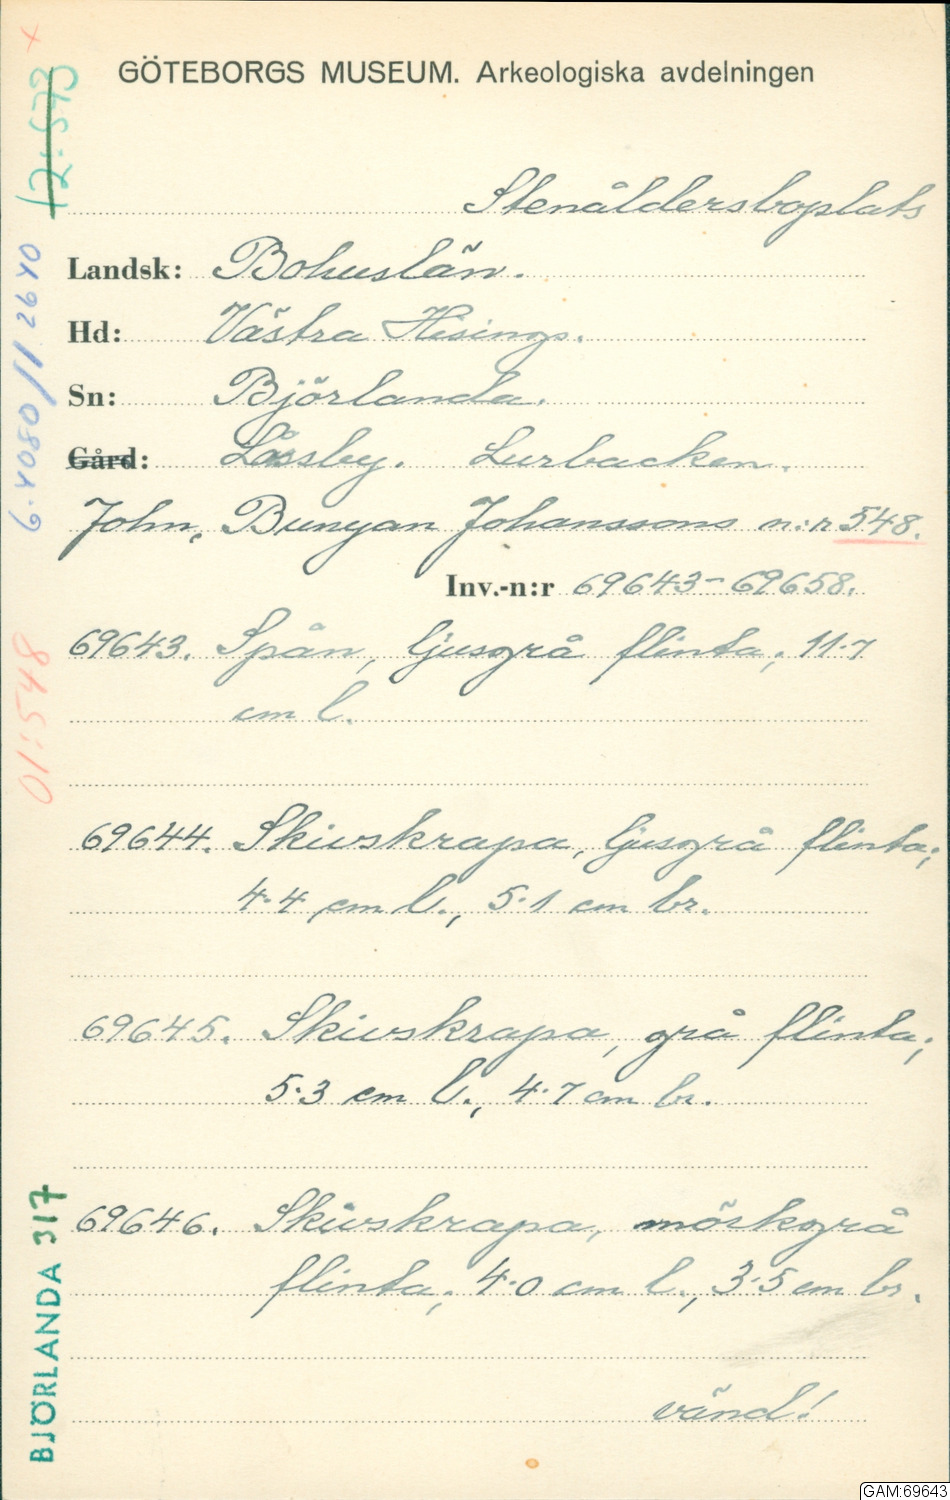 GÖTEBORGS MUSEUM. Arkeologiska avdelningen
Stenåldersboplats
Landsk: Bohuslän.
Hd: Västra Hisings.
Sn: Björlanda.
Gård: Låssby. Lurbacken.
John, Bunyan Johanssons n:r 548.
Inv.-n:r 69643-69658.
69643. Spån, ljusgrå flinta; 11·7
cm l.
69644. Skivskrapa, ljusgrå flinta;
4·4 cm l., 5·1 cm br.
69645. Skivskrapa, grå flinta;
5·3 cm l., 4·7 cm br.
69646. Skivskrapa, mörkgrå
flinta; 4·0 cm l., 3·5 cm br.
vänd!
x
12:573
6·4080 // 2640
01:548
BJÖRLANDA 317
GAM:69643